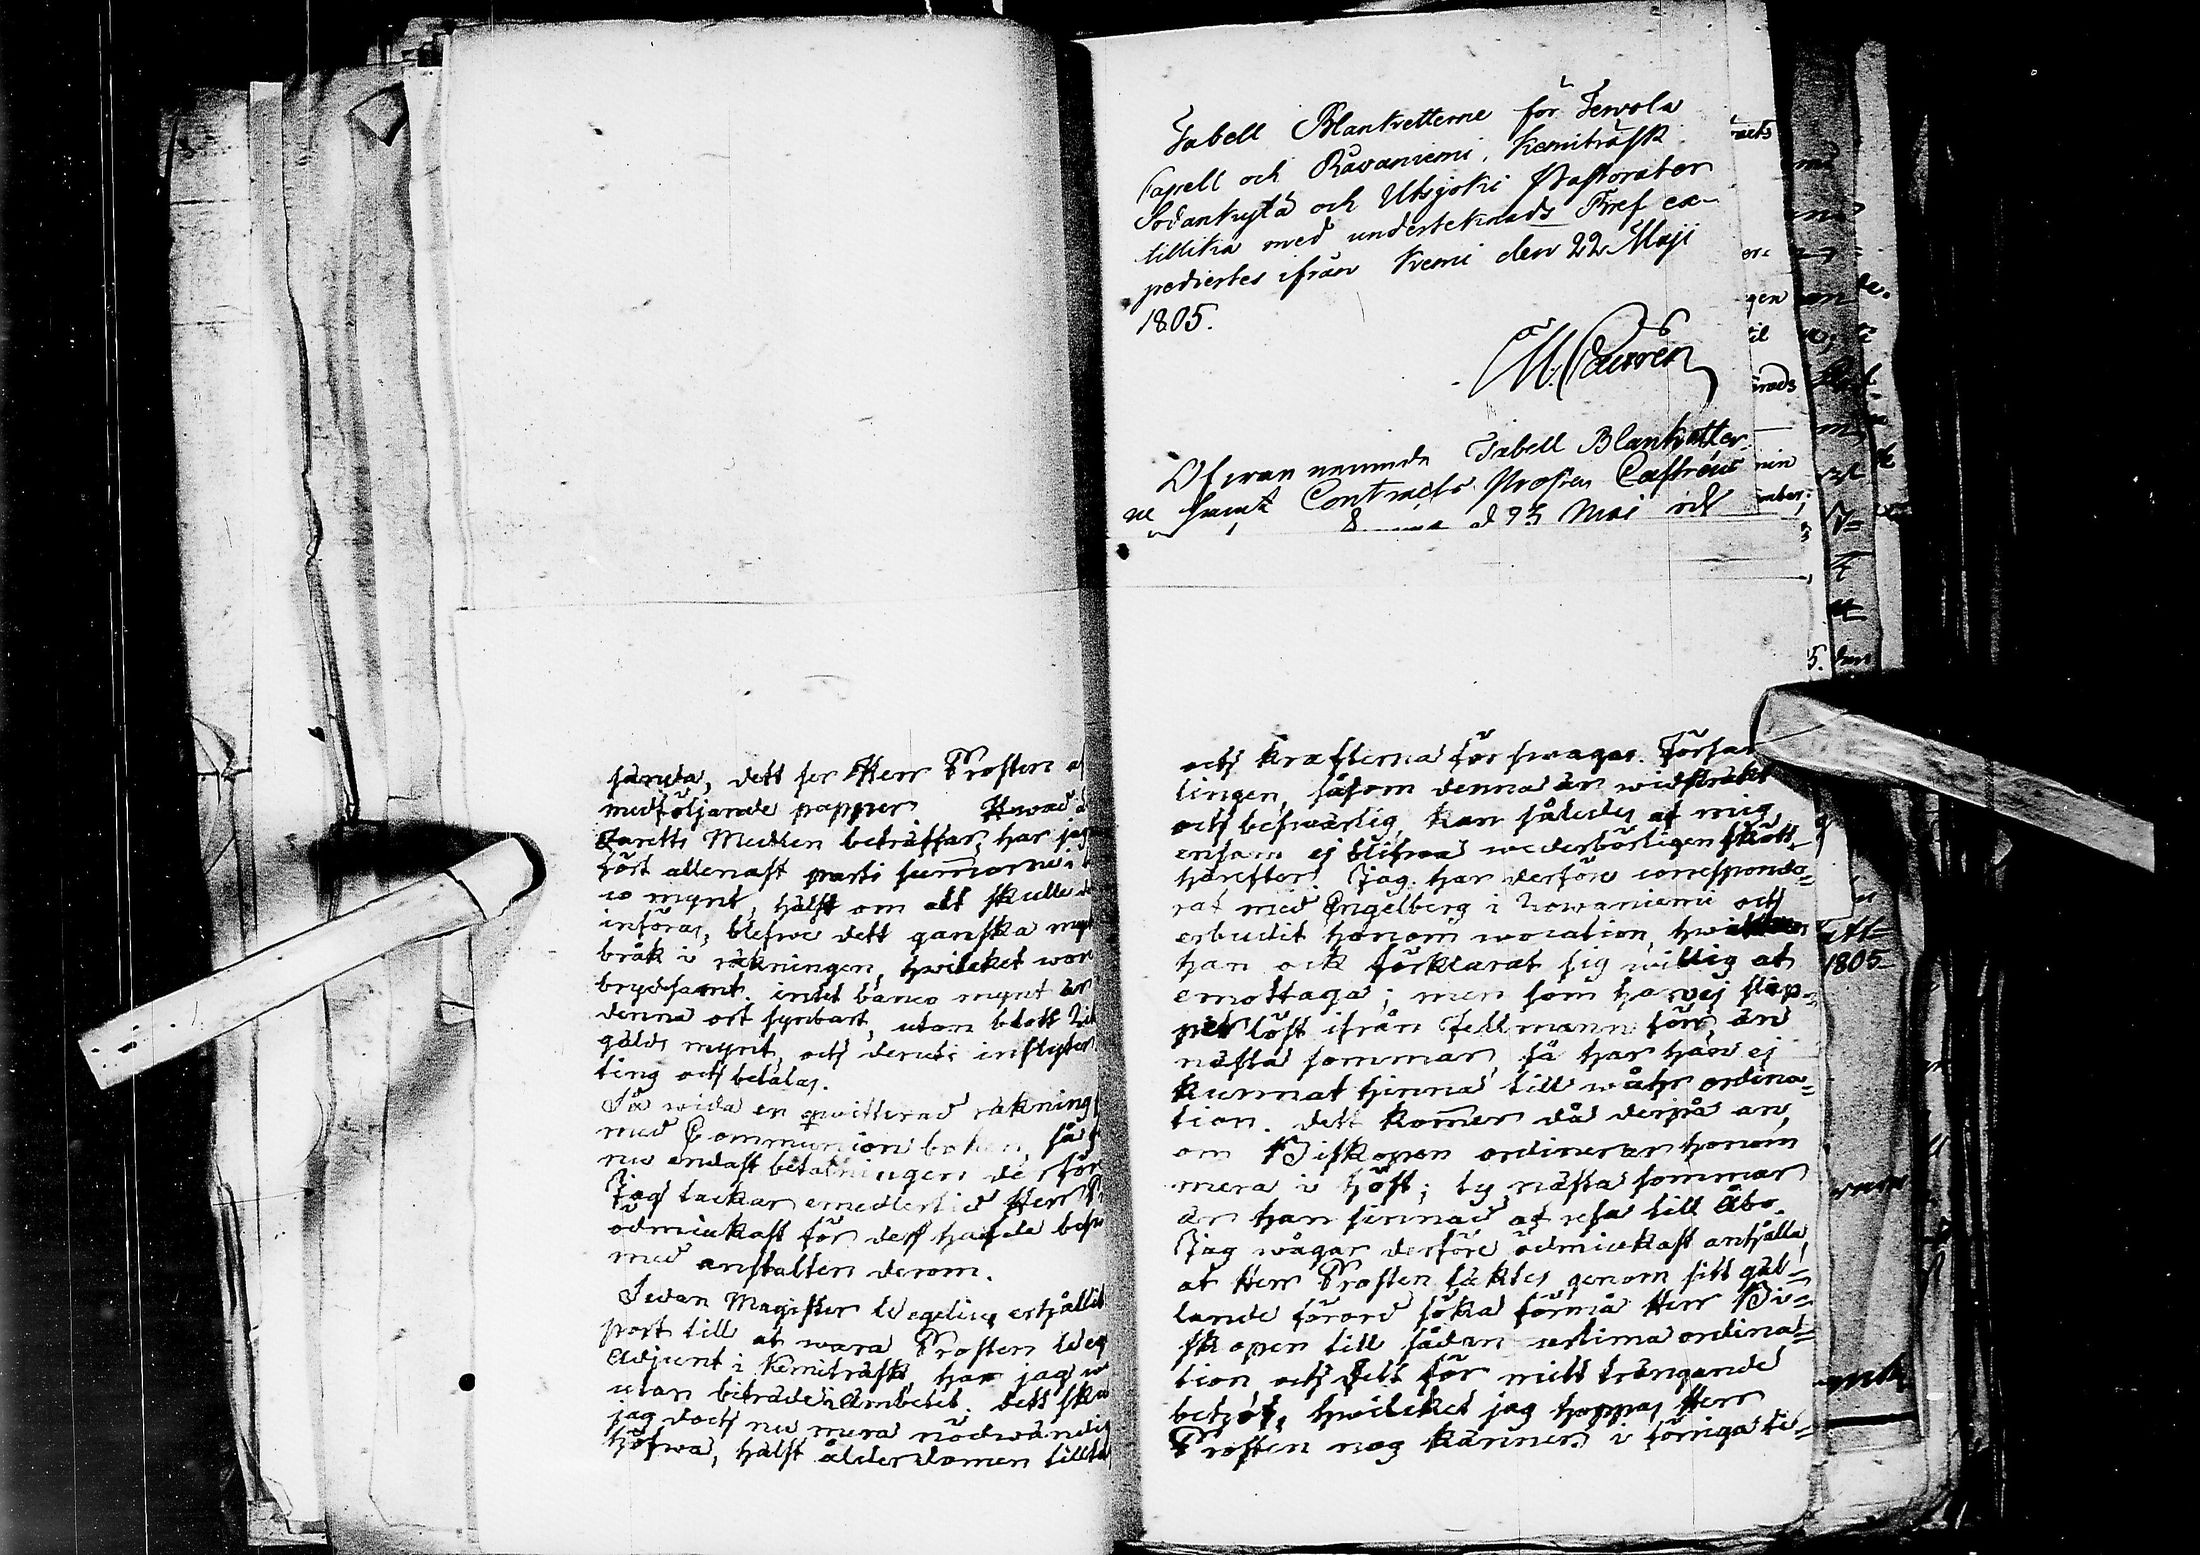 Tabell Blanketterne för Terwola
Capell och Råvaniemi, Kemiträsk
Sodankylä och Utsjoki Pastorater
tillika med underteknads Bref ex-
pedierles ifrån Kemi den 22 Maji
1805.
M. Castrén
Ofwan nemnde Tabell Blanketter
ne samt Contracts Prosten Castréns
d 23 Mai

sända, dett ser Herr Prosten a
medföljande papper. Hwad
Medlen beträffar, har jag
fört allenast summorne i
co mynt, hälst om alt skulle
införas, blefwe dett ganska my
bråk i räkningen, hwilcket wor
brydsamt. intet banco mynt är
denna ort synbart, utan blott Rik
gälds mynt, och deruti inflyter
ting och betalas.
Så wida en qwitterad räkning
med Communion boken, så
nu endast betalningen derför
Jag tackar emedlertid Herr P
ödmiukast för dess hafde besw
med anstalten derom.
Sedan Magister Wegelius erhållit
port till at wara Prosten Weg
Adjunt i Kemiträsk, har jag w
utan biträde i Ambetet. Dett ska
jag doch nu mera nödwändi
höfwa, hälst ålderdomen tillta

och krafterna förswagas. Försam
lingen, såsom denna är widsträkt
och beswärlig, kan således af mig
ensam ej blifwa wederbörligen skött
härefter. Jag har derföre corresponde-
rat med Engelberg i Rowaniemi och
erbudit honom wocation, hwilken
han ock förklarat sig willig at
emottaga; men som han ej slip-
per löst ifrån Fellmann för än
nästa sommar, så har han ej
kunnat hinna till wåhr ordina-
tion. Dett kommer då derpå an,
om Biskopen ordinerar honom
mera i höst; ty nästa sommar
är han sinnad at resa till Åbo.
Jag wågar derföre ödmiukast anhålla,
at Herr Prosten täktes genom sitt gäl-
lande förord söka förmå Herr Bi-
skopen till sådan extima ordina-
tion och dett för mitt trängande
behof, hwilcket jag hoppas Herr
Prosten nog känner. i förriga ti-
1805